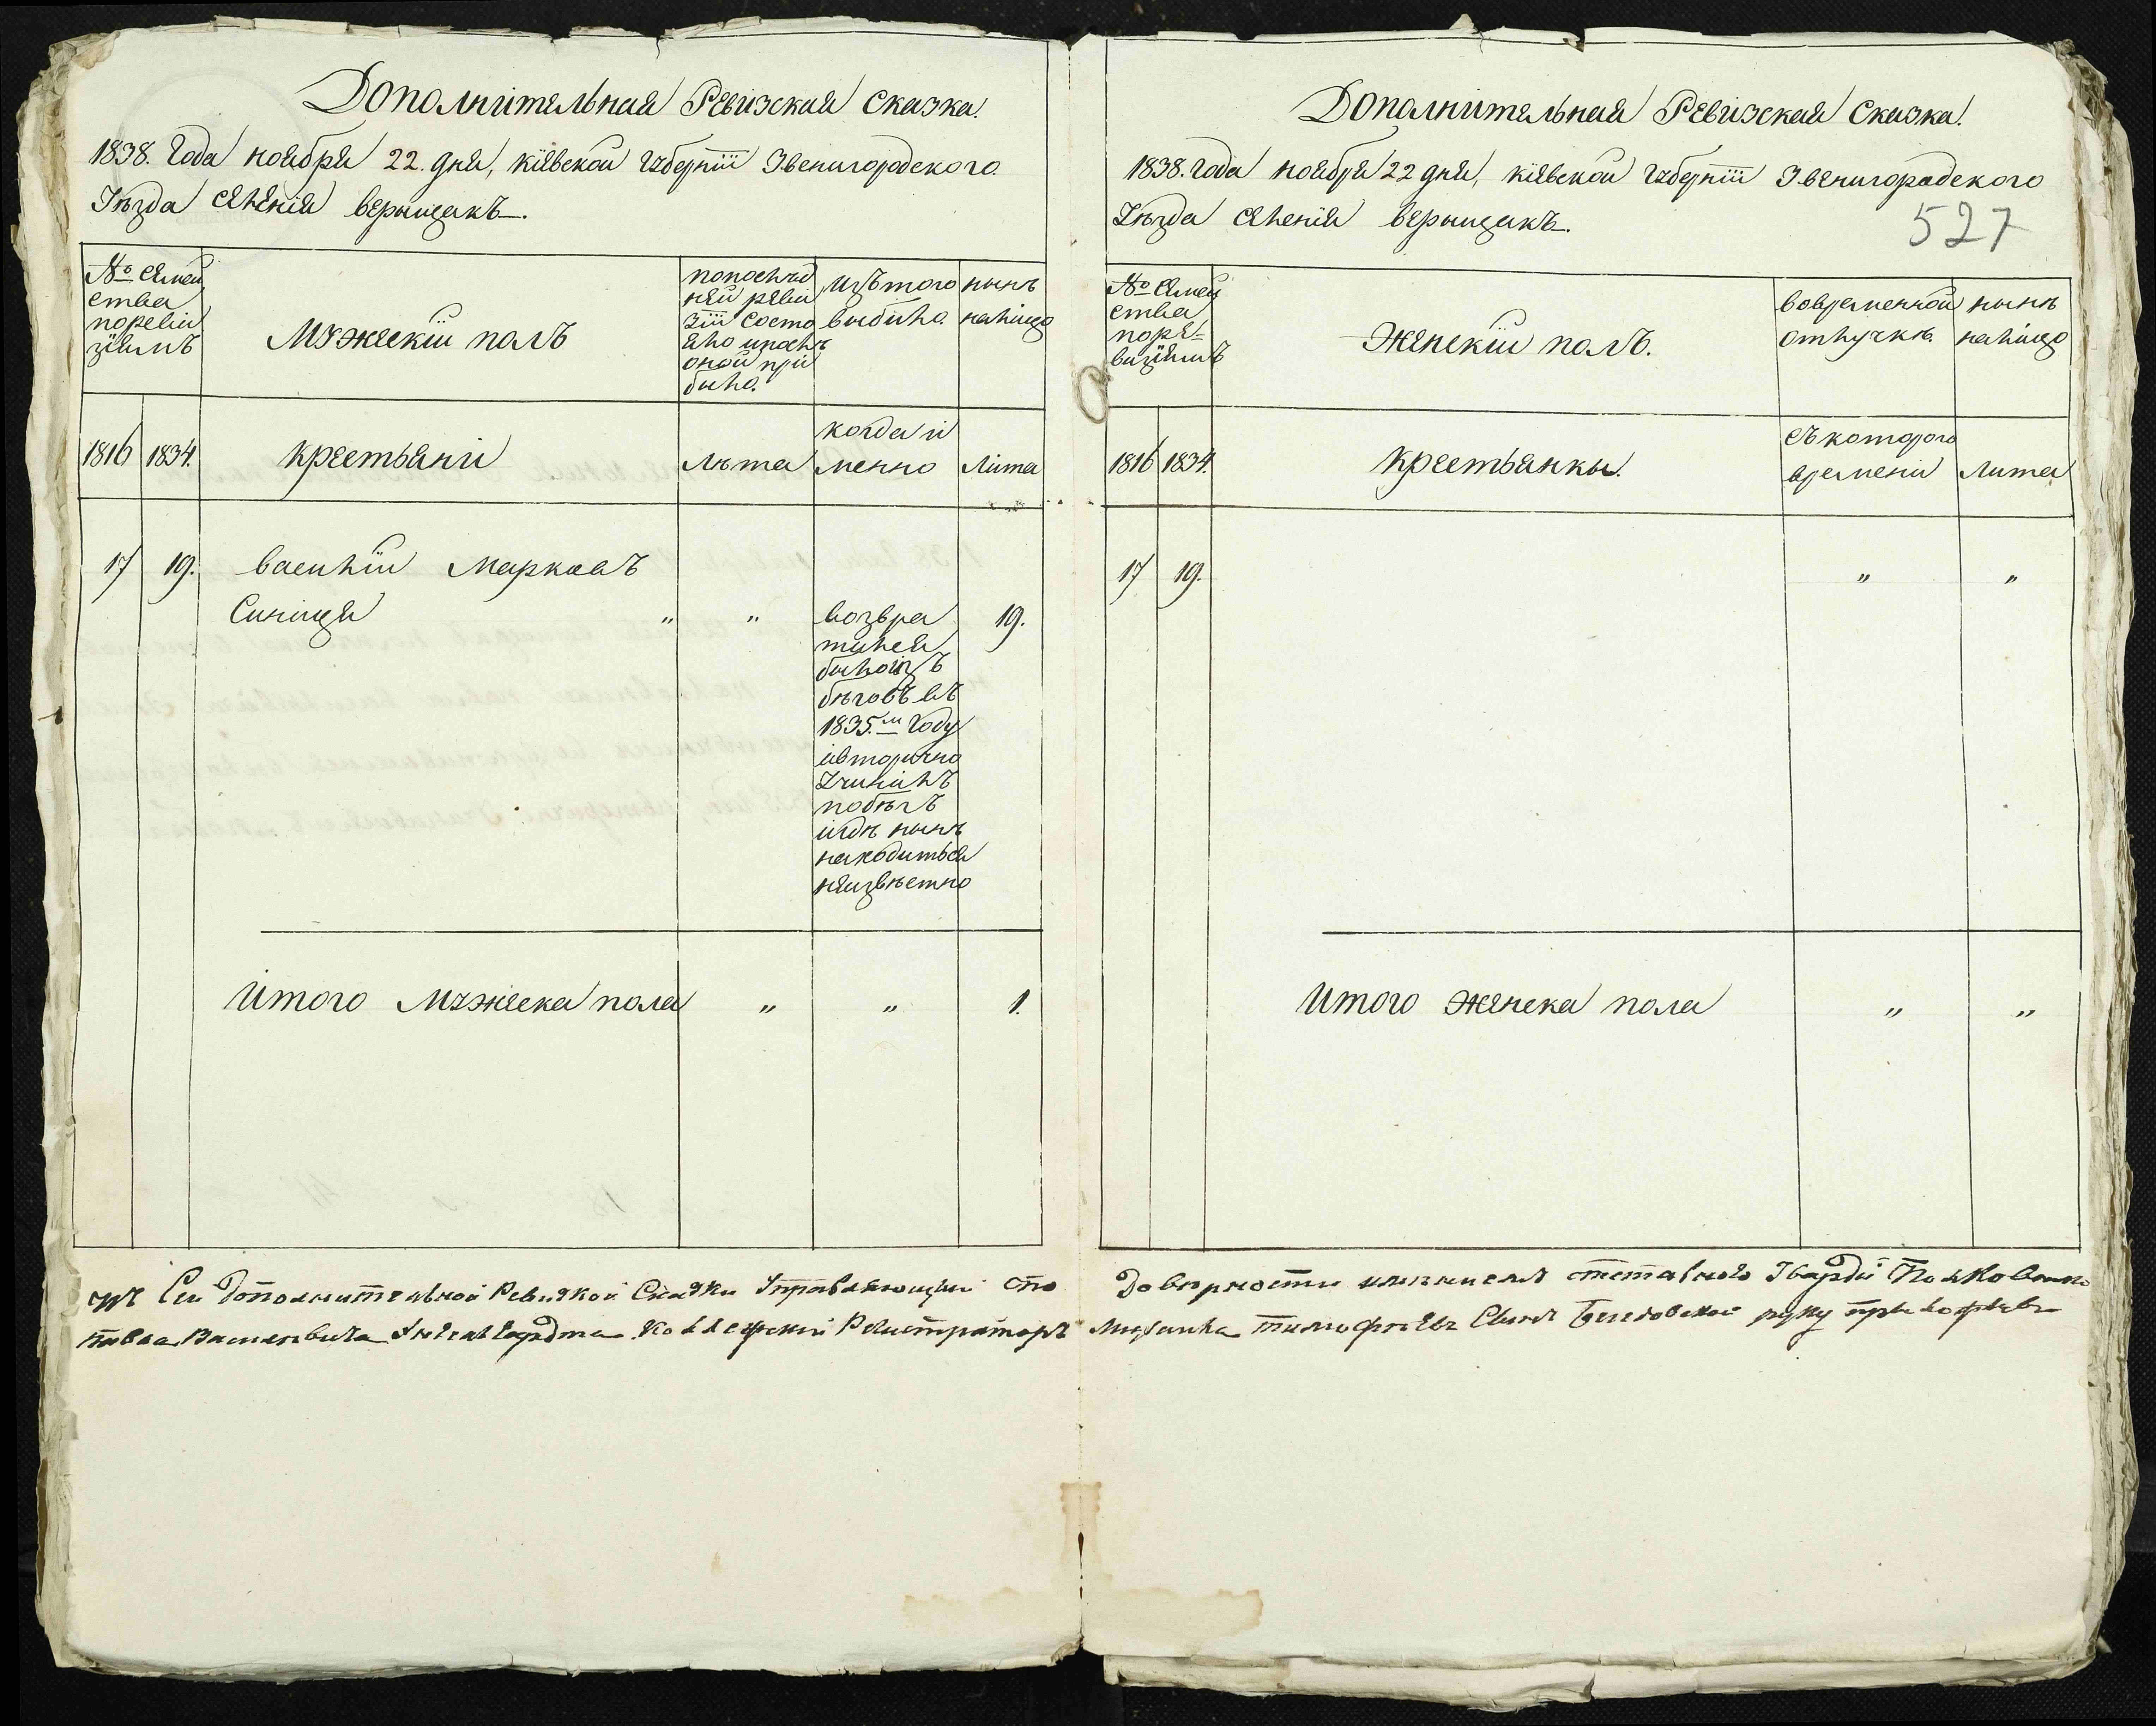 Дополнительная Ревизская Сказка.
1838. Года ноября 22. дня, Кіевской Губерніи Звенигородского
Уѣзда селенія Верещакъ.
№ семей
ства
поревіи
зіямъ
Мужескій полъ
попослѣд
ней реви
зіи состо
яло ипослѣ
оной при
было.
Изъ того
выбыло.
нынѣ
налицо
1816 1834. Крестьяни лѣта
когда и
менно
лѣта
17 19. Василій Марковъ
Синица „ „
возвра
тился
былоизъ
бѣговъ въ
1835.м Году
ивторично
учинилъ
побѣгъ
игдѣ нынѣ
находиться
неизвѣстно
19.
Итого Мужеска пола „ „ 1.
Дополнительная Ревизская Сказка.
1838. Года ноября 22 дня, Кіевской Губерніи Звенигородского
Уѣзда селенія Верещакъ.
527
№ семей
ства
поре-
визіямъ
Женскій полъ.
вовременной
отлучкѣ.
нынѣ
налицо
1816 1834. Крестьянки.
съ которого
времени
лѣта
17 19. „ „
Итого женска пола „ „
Сей дополнительной Ревизкой Скаски Управляющій по
Павла Васильевича Энгельгардта Коллежский Регистраторъ
доверности имѣниемъ отставного Гвардіи Полковника
Тимофѣевъ Сынъ руку приложилъ